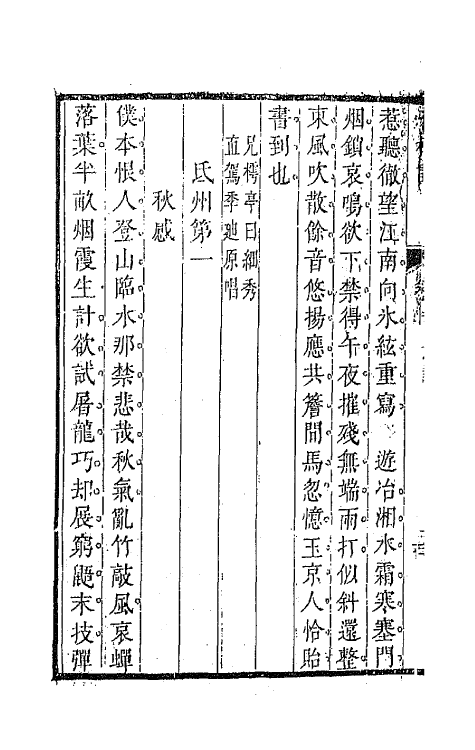 惹聽徹望江南向氷絃重寫　遊冶湘水霜寒塞門
烟鎖哀鳴欲下禁得午夜摧殘無端雨打似斜還整
東風吹散餘音悠揚應共簷間馬忽憶玉京人恰貽
書到也
兄樗亭曰細秀
直駕季廸原唱
氐州第一
秋感
僕本恨人登山臨水那禁悲哉秋氣亂竹敲風哀蟬
落葉半畝烟霞生計欲試屠龍巧却展窮鼯末技彈